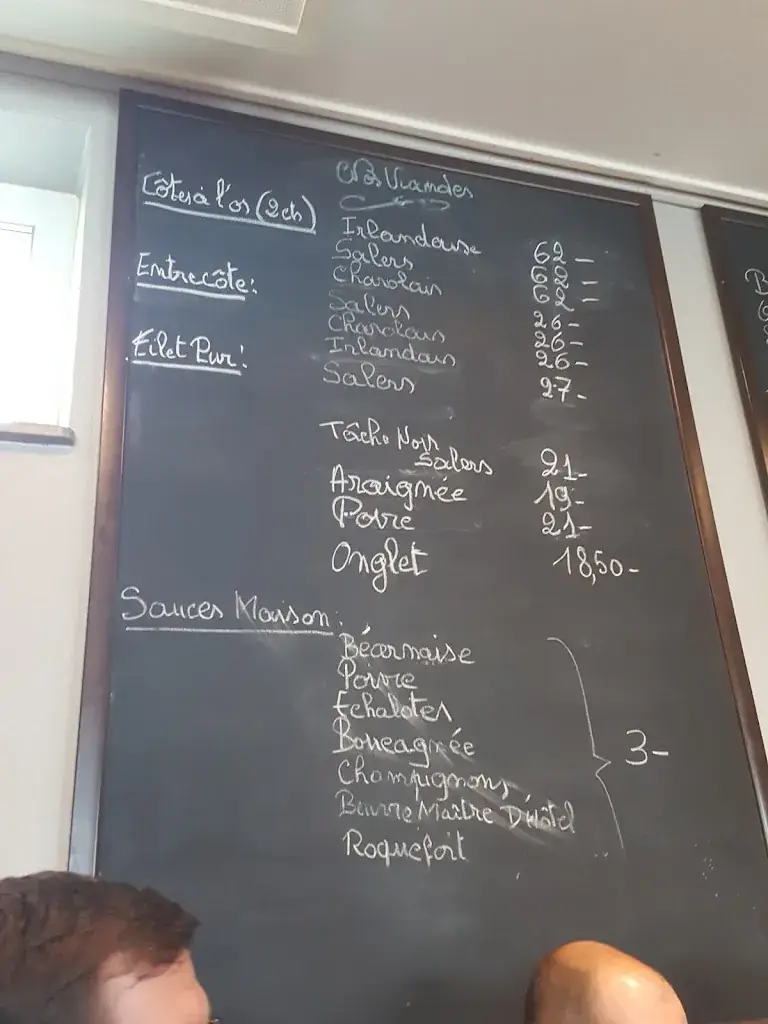 Nos Viandes
Côtes à l'os (2 ch)
Irlandaise 62-
Salers 62-
Charolais 62-
Entrecôte:
Salers 26-
Charolais 26-
Irlandais 26-
Filet Pur:
Salers 27-
Tâche Noir
Salers 21-
Araignée 19-
Poire 21-
Onglet 18,50-
Sauces Maison:
Béarnaise
Poivre
Echalotes
Champignons
Beurre Maître D'hôtel
Roquefort
3-
B